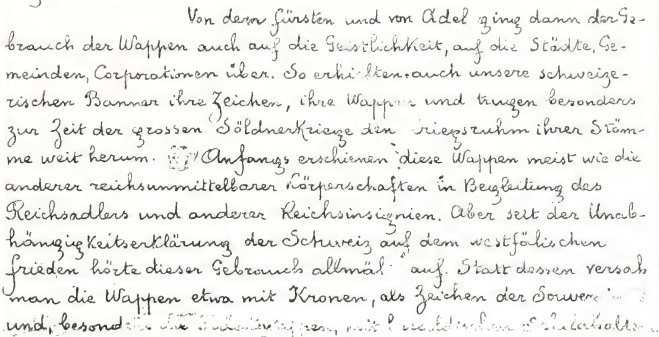 Von dem Fürsten und von Adel ging dann der Ge-
brauch der Wappen auch auf die Geistlichkeit, auf die Städte, Ge-
meinden, Corporationen über. So erhielten auch unsere schweize-
rischen Banner ihre Zeichen, ihre Wappen und trugen besonders
zur Zeit der grossen Söldnerkriege den Kriegsruhm ihrer Stäm-
me weit herum. Anfangs erschienen diese Wappen meist wie die
anderer reichsunmittelbarer Körperschaften in Begleitung des
Reichsadlers und anderer Reichsinsignien. Aber seit der Unab-
hängigkeitserklärung der Schweiz auf dem westfälischen
Frieden hörte dieser Gebrauch allmäl auf. Statt dessen versah
man die Wappen etwa mit Kronen, als Zeichen der
und, mit